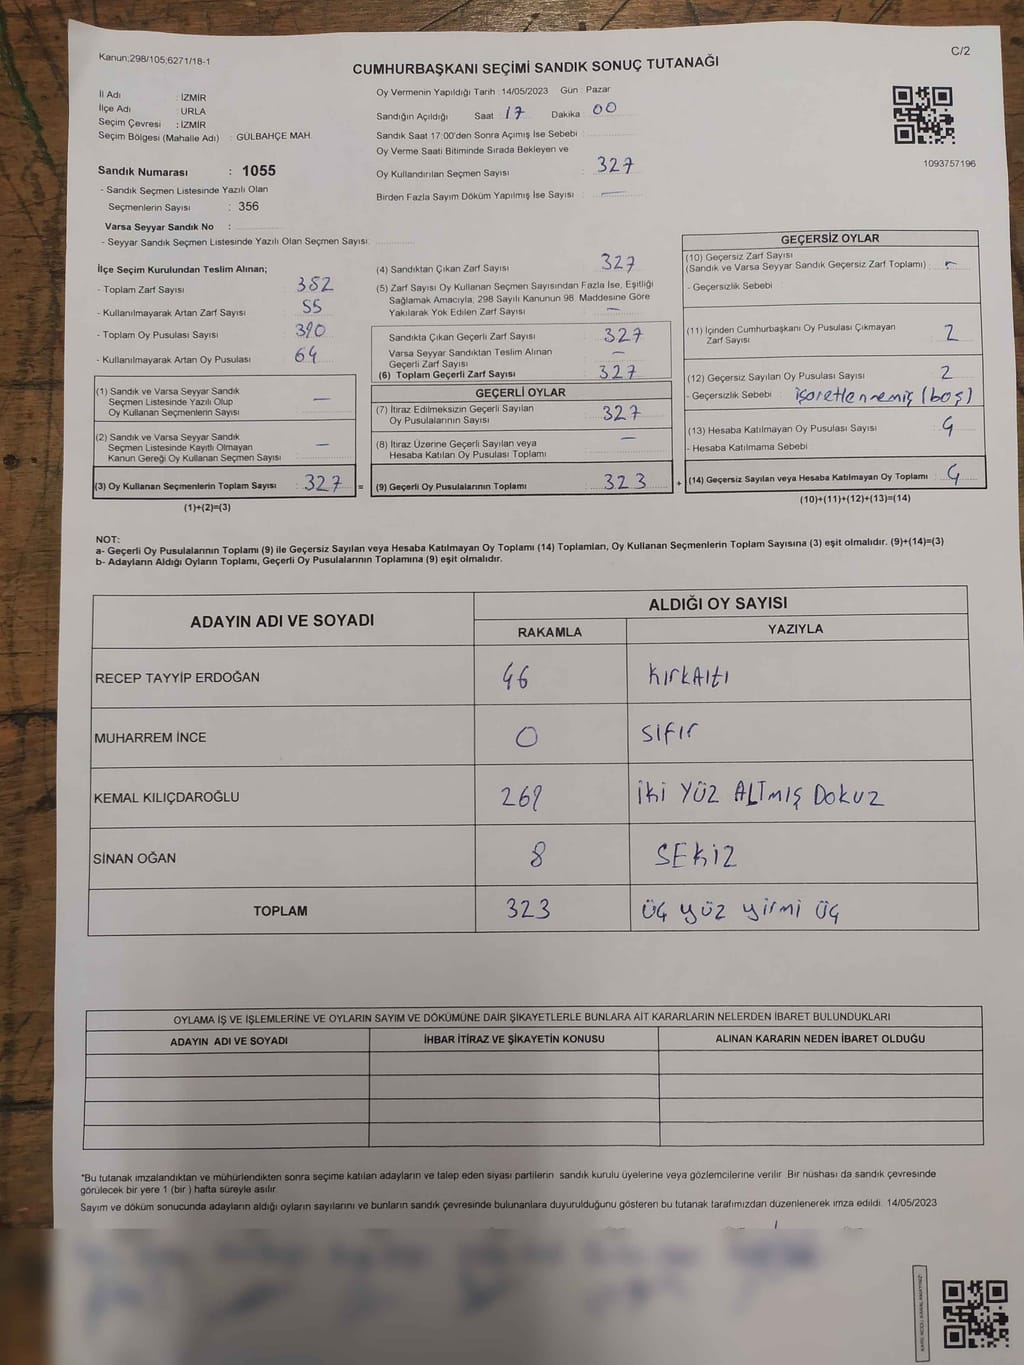 Kanun:298/105;6271/18-1
C/2
CUMHURBAŞKANI SEÇİMİ SANDIK SONUÇ TUTANAĞI
İl Adı : İZMİR
İlçe Adı : URLA
Seçim Çevresi : İZMİR
Seçim Bölgesi (Mahalle Adı) : GÜLBAHÇE MAH.
Sandık Numarası : 1055
- Sandık Seçmen Listesinde Yazılı Olan
Seçmenlerin Sayısı : 356
Varsa Seyyar Sandık No :
- Seyyar Sandık Seçmen Listesinde Yazılı Olan Seçmen Sayısı:
Oy Vermenin Yapıldığı Tarih : 14/05/2023 Gün : Pazar
Sandığın Açıldığı Saat : 17 Dakika : 00
Sandık Saat 17:00'den Sonra Açımış İse Sebebi :
Oy Verme Saati Bitiminde Sırada Bekleyen ve
Oy Kullandırılan Seçmen Sayısı : 327
Birden Fazla Sayım Döküm Yapılmış İse Sayısı : —
1093757196
İlçe Seçim Kurulundan Teslim Alınan;
- Toplam Zarf Sayısı : 382
- Kullanılmayarak Artan Zarf Sayısı : 55
- Toplam Oy Pusulası Sayısı : 390
- Kullanılmayarak Artan Oy Pusulası : 64
(1) Sandık ve Varsa Seyyar Sandık
Seçmen Listesinde Yazılı Olup
Oy Kullanan Seçmenlerin Sayısı : —
(2) Sandık ve Varsa Seyyar Sandık
Seçmen Listesinde Kayıtlı Olmayan
Kanun Gereği Oy Kullanan Seçmen Sayısı : —
(3) Oy Kullanan Seçmenlerin Toplam Sayısı : 327 =
(1)+(2)=(3)
(4) Sandıktan Çıkan Zarf Sayısı : 327
(5) Zarf Sayısı Oy Kullanan Seçmen Sayısından Fazla İse, Eşitliği
Sağlamak Amacıyla, 298 Sayılı Kanunun 98 Maddesine Göre
Yakılarak Yok Edilen Zarf Sayısı : —
Sandıkta Çıkan Geçerli Zarf Sayısı : 327
Varsa Seyyar Sandıktan Teslim Alınan
Geçerli Zarf Sayısı : —
(6) Toplam Geçerli Zarf Sayısı : 327
GEÇERLİ OYLAR
(7) İtiraz Edilmeksizin Geçerli Sayılan
Oy Pusulalarının Sayısı : 327
(8) İtiraz Üzerine Geçerli Sayılan veya
Hesaba Katılan Oy Pusulası Toplamı : —
(9) Geçerli Oy Pusulalarının Toplamı : 323 +
GEÇERSİZ OYLAR
(10) Geçersiz Zarf Sayısı
(Sandık ve Varsa Seyyar Sandık Geçersiz Zarf Toplamı) : -
- Geçersizlik Sebebi :
(11) İçinden Cumhurbaşkanı Oy Pusulası Çıkmayan
Zarf Sayısı : 2
(12) Geçersiz Sayılan Oy Pusulası Sayısı : 2
- Geçersizlik Sebebi : işaretlenmemiş (boş)
(13) Hesaba Katılmayan Oy Pusulası Sayısı : 4
- Hesaba Katılmama Sebebi
(14) Geçersiz Sayılan veya Hesaba Katılmayan Oy Toplamı : 4
(10)+(11)+(12)+(13)=(14)
NOT:
a- Geçerli Oy Pusulalarının Toplamı (9) ile Geçersiz Sayılan veya Hesaba Katılmayan Oy Toplamı (14) Toplamları, Oy Kullanan Seçmenlerin Toplam Sayısına (3) eşit olmalıdır. (9)+(14)=(3)
b- Adayların Aldığı Oyların Toplamı, Geçerli Oy Pusulalarının Toplamına (9) eşit olmalıdır.
ADAYIN ADI VE SOYADI ALDIĞI OY SAYISI
RAKAMLA YAZIYLA
RECEP TAYYİP ERDOĞAN 46 kırkAltı
MUHARREM İNCE 0 sıfır
KEMAL KILIÇDAROĞLU 269 iki YÜZ ALTMIŞ DOKUZ
SİNAN OĞAN 8 SEKİZ
TOPLAM 323 üç yüz yirmi üç
OYLAMA İŞ VE İŞLEMLERİNE VE OYLARIN SAYIM VE DÖKÜMÜNE DAİR ŞİKAYETLERLE BUNLARA AİT KARARLARIN NELERDEN İBARET BULUNDUKLARI
ADAYIN ADI VE SOYADI İHBAR İTİRAZ VE ŞİKAYETİN KONUSU ALINAN KARARIN NEDEN İBARET OLDUĞU
*Bu tutanak imzalandıktan ve mühürlendikten sonra seçime katılan adayların ve talep eden siyası partilerin sandık kurulu üyelerine veya gözlemcilerine verilir. Bir nüshası da sandık çevresinde
görülecek bir yere 1 (bir ) hafta süreyle asılır.
Sayım ve döküm sonucunda adayların aldığı oyların sayılarını ve bunların sandık çevresinde bulunanlara duyurulduğunu gösteren bu tutanak tarafımızdan düzenlenerek imza edildi. 14/05/2023